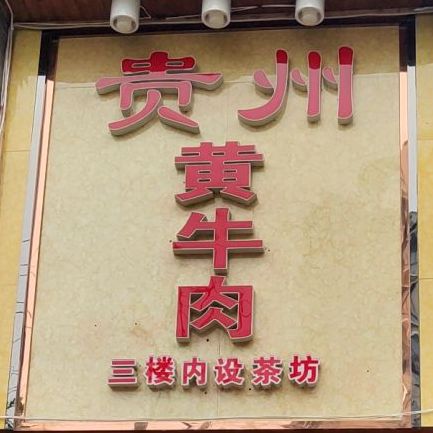 贵州
黄牛肉
三楼内设茶坊